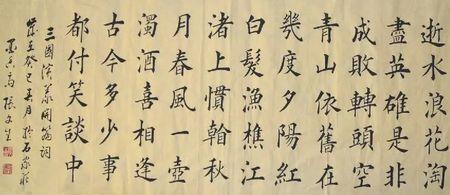 逝水浪花淘
盡英雄是非
成敗轉頭空
青山依舊在
幾度夕陽紅
白髮漁樵江
渚上慣翰秋
月春風一壺
濁酒喜相逢
古今多少事
都付笑談中
三國演義開篇詞
癸巳 月於石家莊
張文生